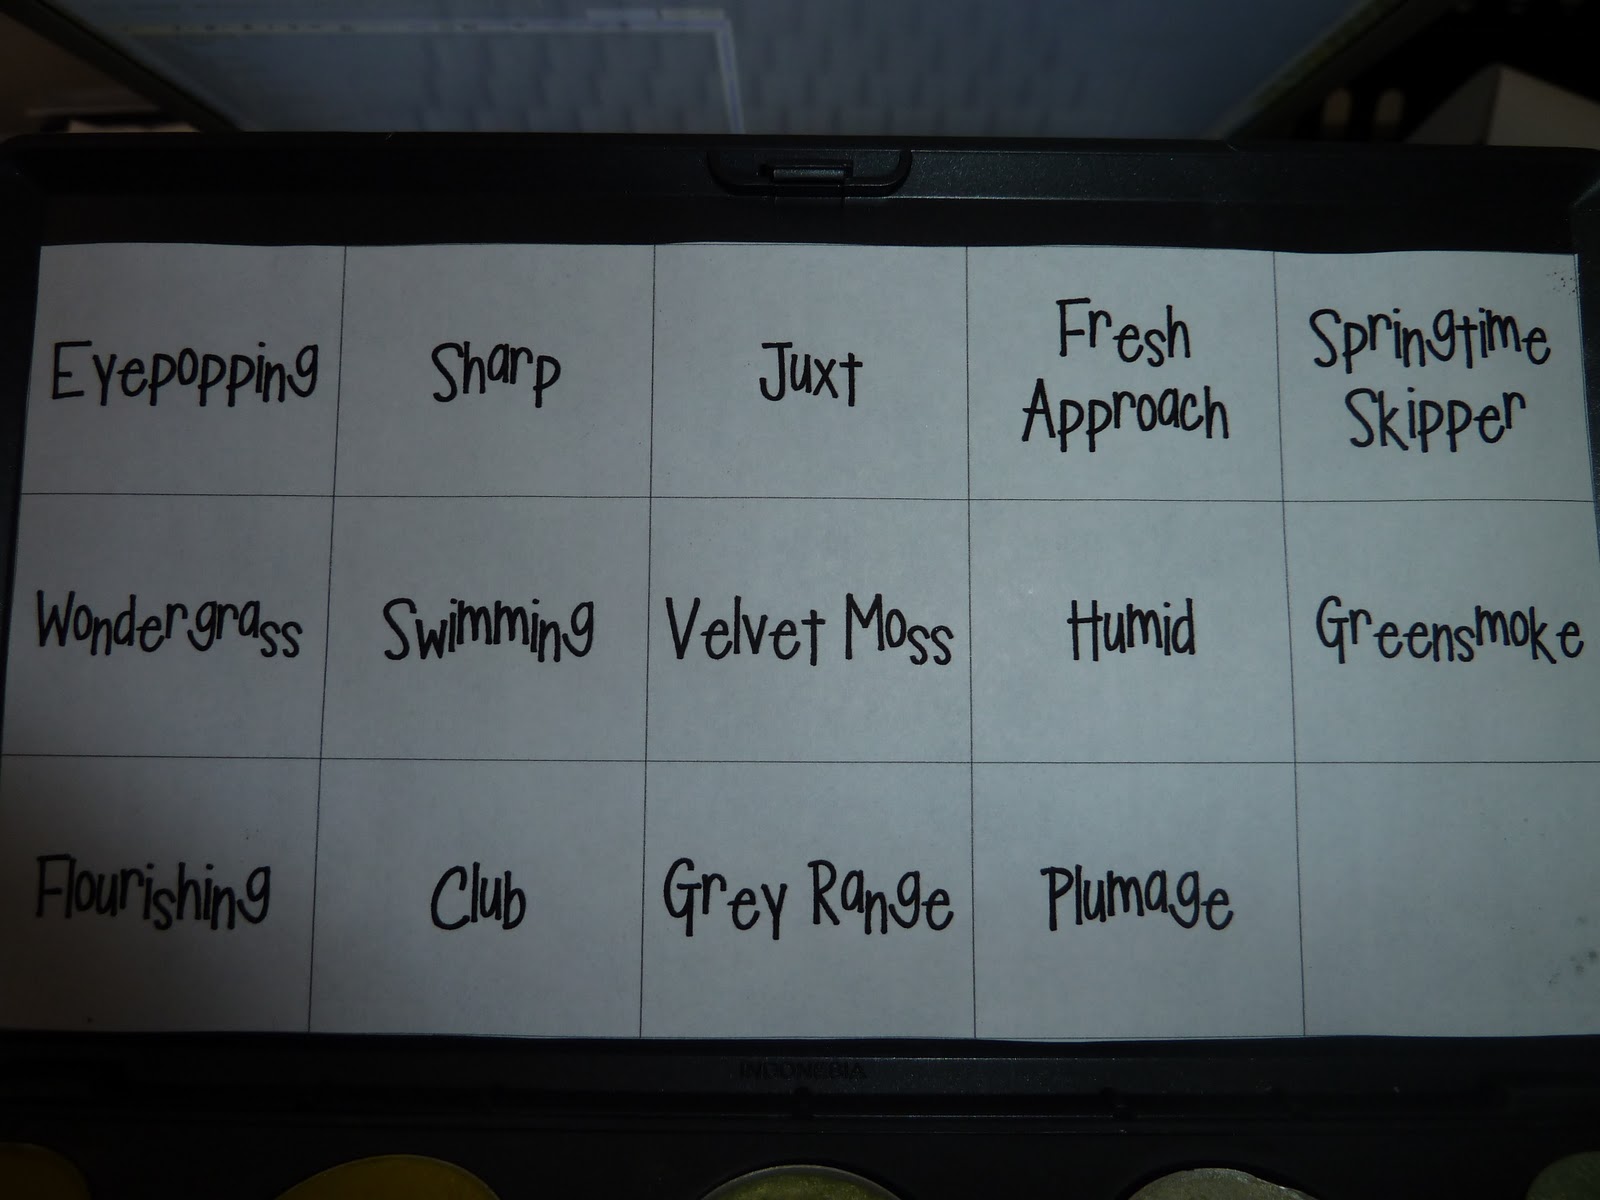 Eyepopping
Sharp
Juxt
Fresh
Approach
Springtime
Skipper
Wondergrass
Swimming
Velvet Moss
Humid
Greensmoke
Flourishing
Club
Grey Range
Plumage
INDONESIA